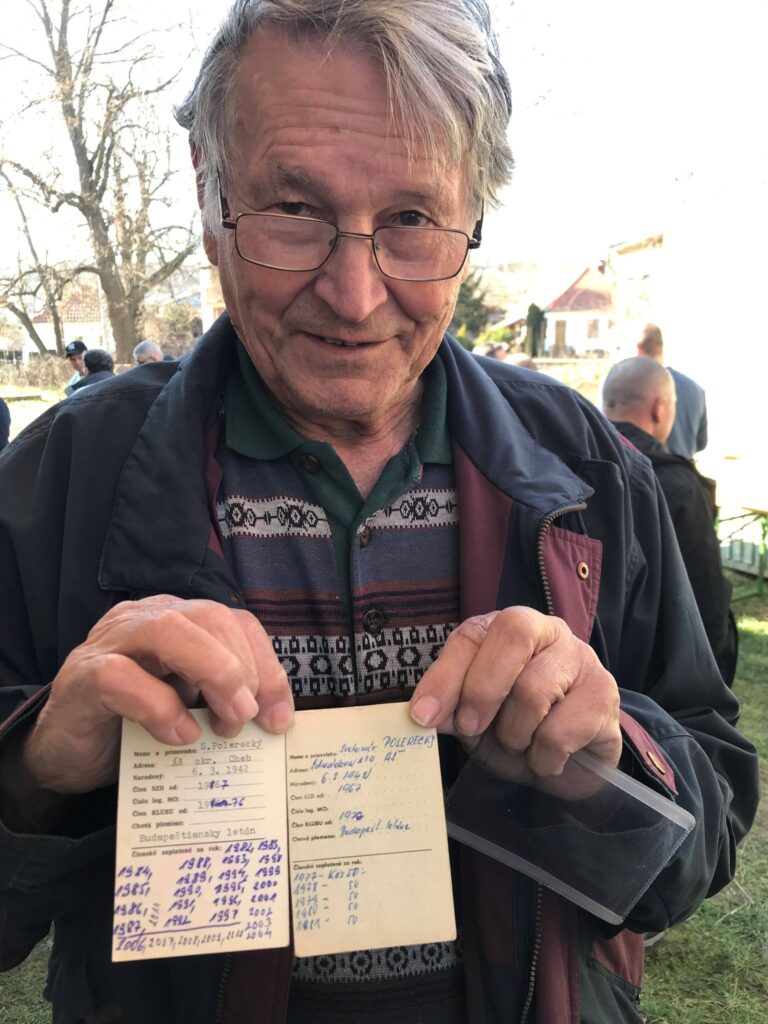 Meno a priezvisko: S.Polerecký
Adresa: okr. Cheb
Narodený: 6. 3. 1942
Člen SZD od: 1967
Číslo leg. MO:
Člen KLUBU od: 1976
Chová plemeno:
Budapeštiansky letún
Členské zaplatené za rok: 1982, 1983,
1984, 1988, 1993, 1998
1985, 1989, 1994, 1999
1986, 1990, 1995, 2000
1987, 1991, 1996, 2001
1992 1997 2002
2003
2006, 2007, 2008, 2009, 2004
2011
Meno a priezvisko: POLERECKÝ
Adresa: Aš
Narodený: 6.3.1942
Člen SZD od: 1967
Číslo leg. MO:
Člen KLUBU od: 1976
Chová plemeno: Budapešt. letún
Členské zaplatené za rok:
1977 - Kčs 50.-
1978 - 50
1979 - 50
1980 - 50
1981 - 50.